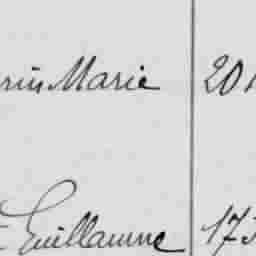 Marie 20
Guillaume 17